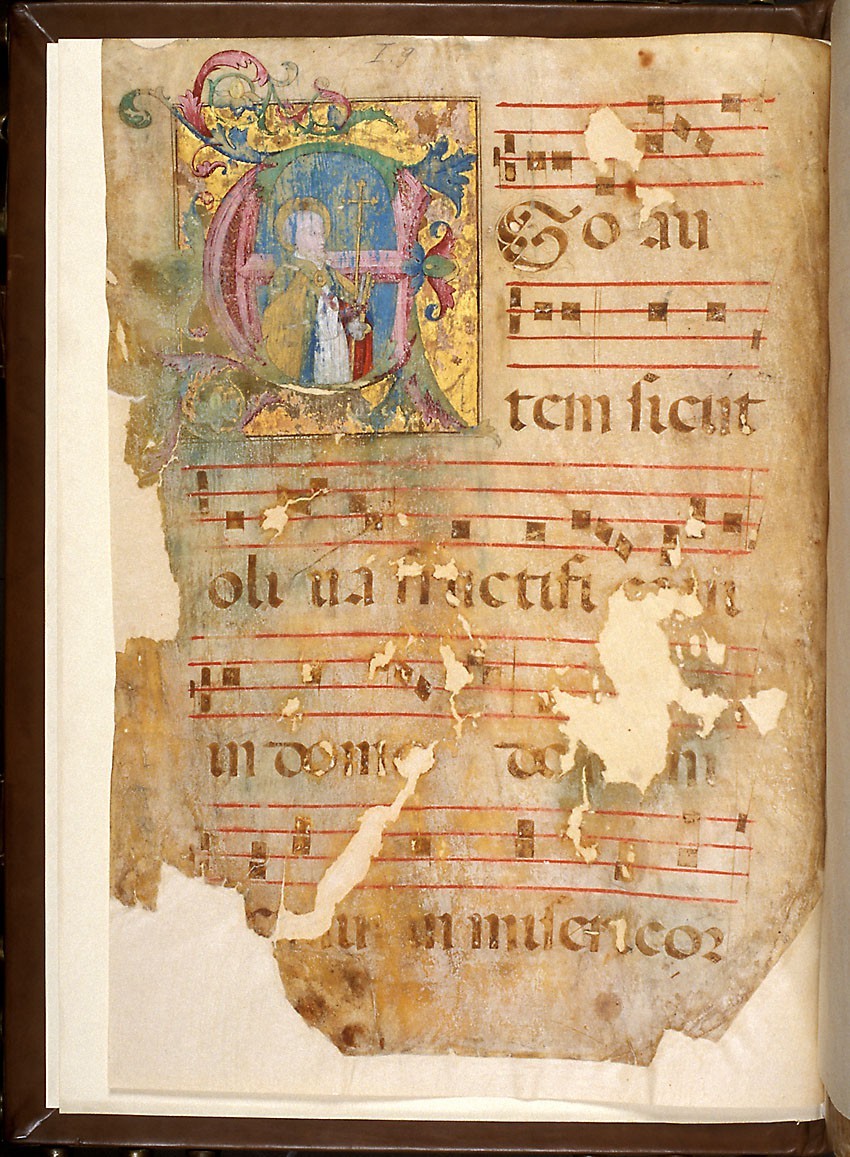 I.9
EGo au
tem sicut
oli ua fructifi
in domo
in misericor